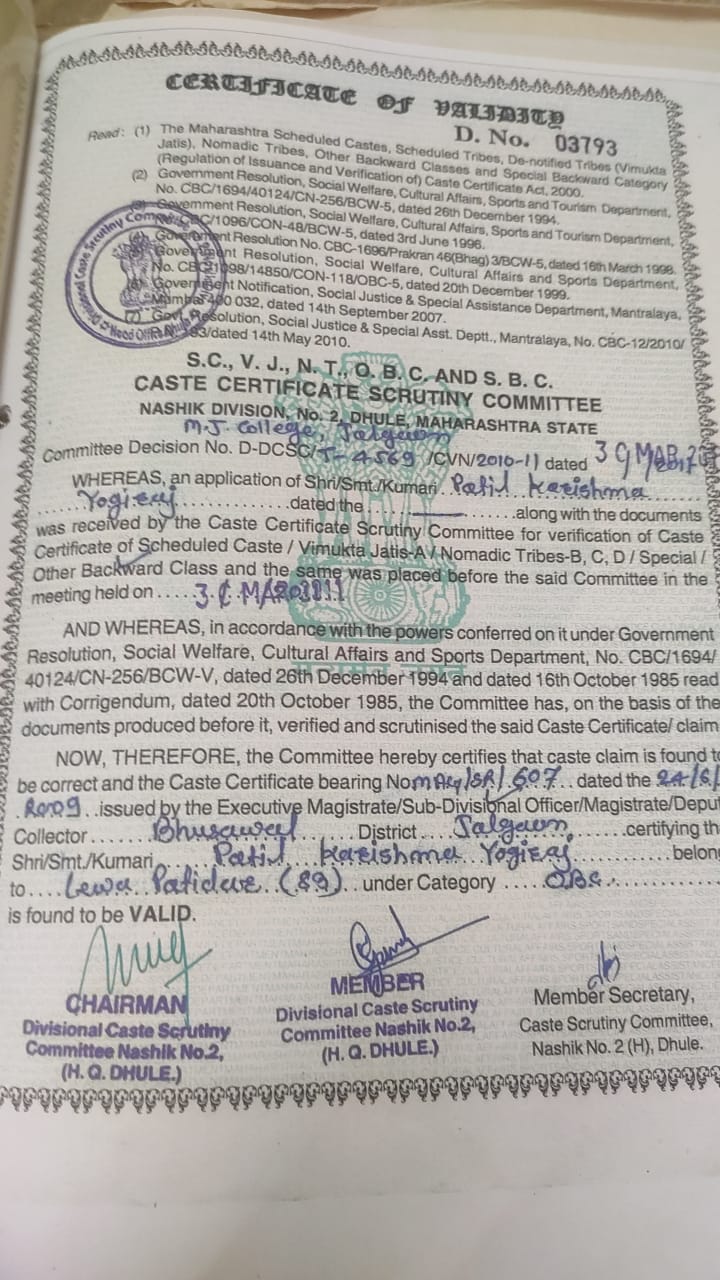 CERTIFICATE OF VALIDITY
D. No. 03793
Read : (1) The Maharashtra Scheduled Castes, Scheduled Tribes, De-notified Tribes (Vimukta
Jatis), Nomadic Tribes, Other Backward Classes and Special Backward Category
(Regulation of Issuance and Verification of) Caste Certificate Act, 2000.
(2) Government Resolution, Social Welfare, Cultural Affairs, Sports and Tourism Department,
No. CBC/1694/40124/CN-256/BCW-5, dated 26th December 1994.
Government Resolution, Social Welfare, Cultural Affairs, Sports and Tourism Department,
CBC/1096/CON-48/BCW-5, dated 3rd June 1996.
Government Resolution No. CBC-1696/Prakran 46(Bhag) 3/BCW-5, dated 16th March 1998.
Government Resolution, Social Welfare, Cultural Affairs and Sports Department,
No. 14850/CON-118/OBC-5, dated 20th December 1999.
Government Notification, Social Justice & Special Assistance Department, Mantralaya,
Mumbai 400 032, dated 14th September 2007.
(7) Govt. Resolution, Social Justice & Special Asst. Deptt., Mantralaya, No. CBC-12/2010/
dated 14th May 2010.
Divisional Caste Scrutiny
S.C., V. J., N. T., O. B. C. AND S. B. C.
CASTE CERTIFICATE SCRUTINY COMMITTEE
NASHIK DIVISION, No. 2, DHULE, MAHARASHTRA STATE
M.J. College, Jalgaon
Committee Decision No. D-DCSC/J-4569/CVN/2010-11 dated
WHEREAS, an application of Shri/Smt./Kumari Patil Karishma
Yogiraj dated the along with the documents
was received by the Caste Certificate Scrutiny Committee for verification of Caste
Certificate of Scheduled Caste / Vimukta Jatis-A / Nomadic Tribes-B, C, D / Special /
Other Backward Class and the same was placed before the said Committee in the
meeting held on
AND WHEREAS, in accordance with the powers conferred on it under Government
Resolution, Social Welfare, Cultural Affairs and Sports Department, No. CBC/1694/
40124/CN-256/BCW-V, dated 26th December 1994 and dated 16th October 1985 read
with Corrigendum, dated 20th October 1985, the Committee has, on the basis of the
documents produced before it, verified and scrutinised the said Caste Certificate/ claim
NOW, THEREFORE, the Committee hereby certifies that caste claim is found to
be correct and the Caste Certificate bearing No MAG/SR/607 dated the
2009 issued by the Executive Magistrate/Sub-Divisional Officer/Magistrate/Deput
Collector Bhusawal District Jalgaon certifying th
Shri/Smt./Kumari Patil Karishma Yogiraj belon
to Lewa Patidar (89) under Category OBC
is found to be VALID.
CHAIRMAN
Divisional Caste Scrutiny
Committee Nashik No.2,
(H. Q. DHULE.)
MEMBER
Divisional Caste Scrutiny
Committee Nashik No.2,
(H. Q. DHULE.)
Member Secretary,
Caste Scrutiny Committee,
Nashik No. 2 (H), Dhule.